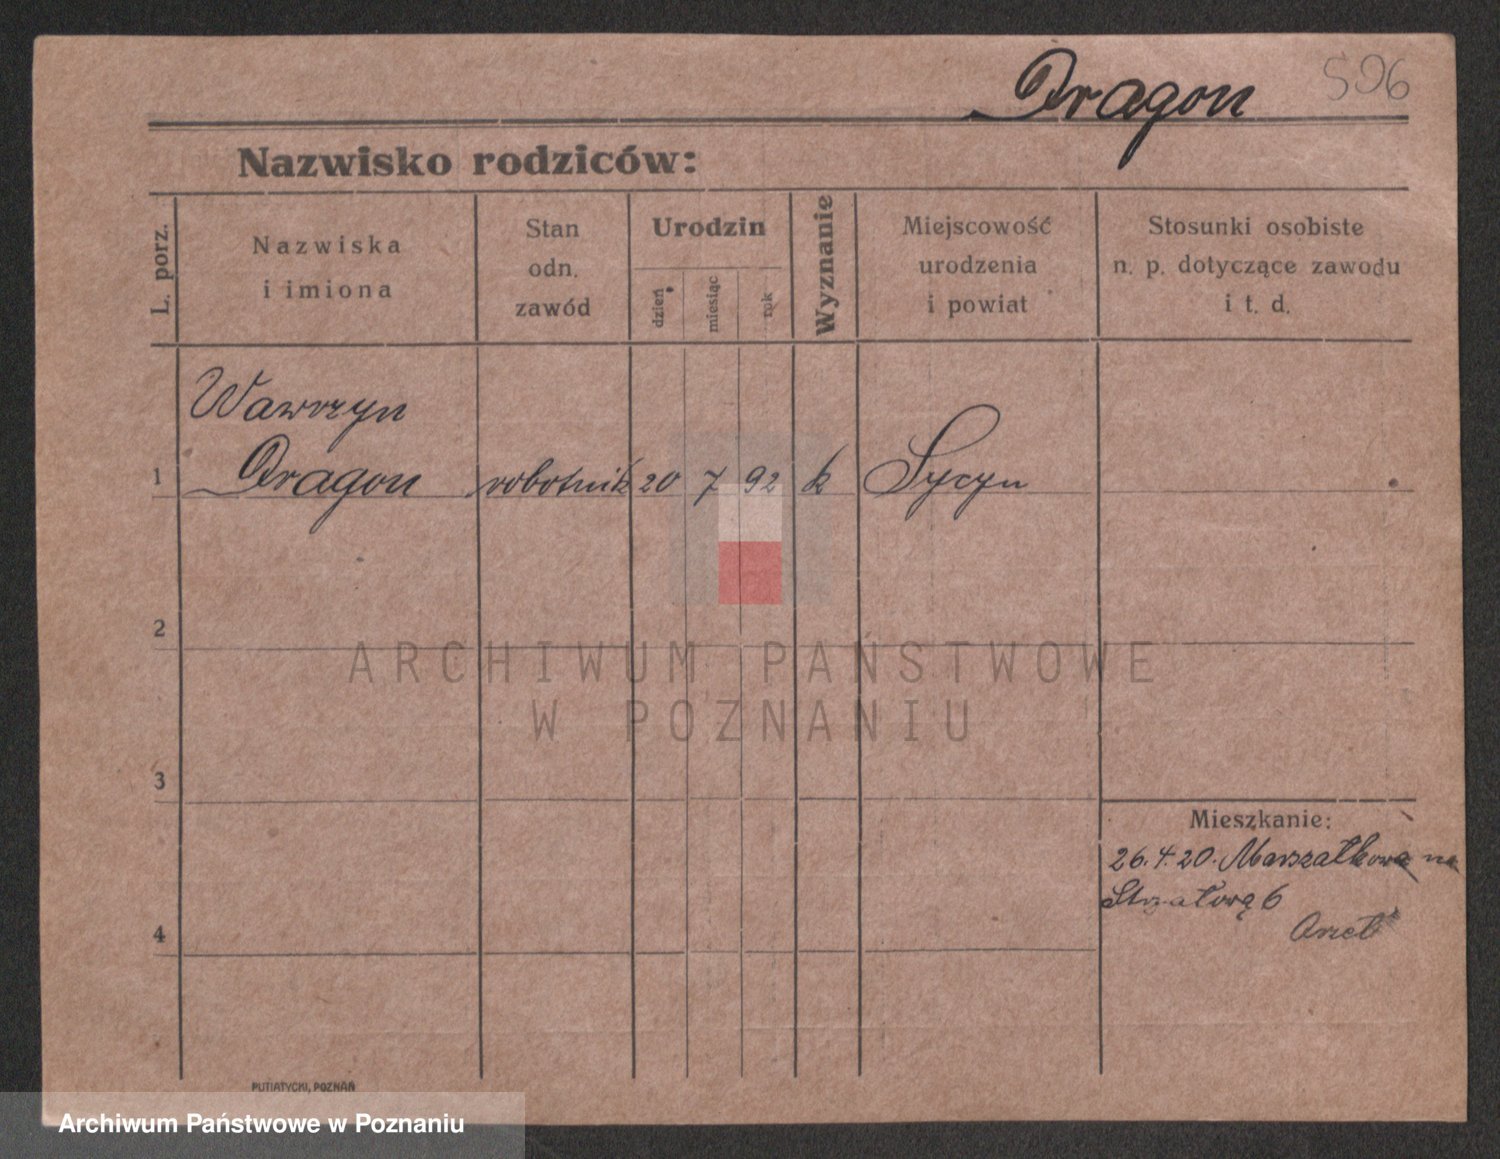 Dragon 596
Nazwisko rodziców:
L. porz.
Nazwiska
i imiona
Stan
odn.
zawód
Urodzin
dzień
miesiąc
rok
Wyznanie
Miejscowość
urodzenia
i powiat
Stosunki osobiste
n. p. dotyczące zawodu
i t. d.
Wawrzyn
1 Dragon robotnik 20 7 92 k Sycyn
2
ARCHIWUM PAŃSTWOWE
W POZNANIU
3
Mieszkanie:
26.4.20. Marszałkowa na
Strzałową 6
4
PUTIATYCKI, POZNAŃ
Archiwum Państwowe w Poznaniu